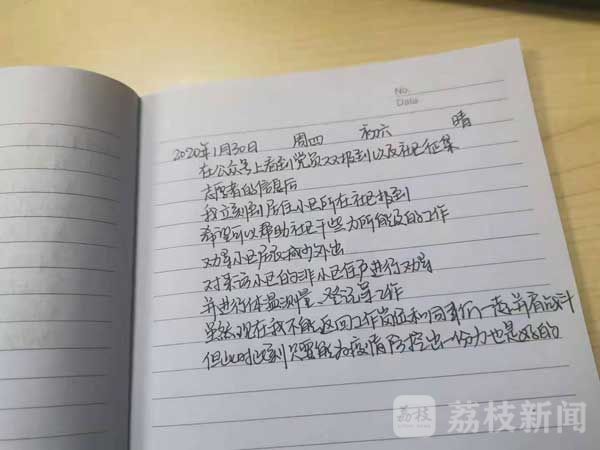 No.
Date
2020年1月30日 周四 初六 晴
在公众号上看到党员双报到以及社区征集
志愿者的信息后
我立刻到居住小区所在社区报到
希望可以帮助社区干些力所能及的工作
劝导小区居民减少外出
对来访小区的非小区住户进行劝导
并进行体温测量、登记等工作
虽然现在我不能返回工作岗位和同事们一起并肩战斗
但此时此刻只要能为疫情防控出一份力也是好的
荔枝
荔枝新闻